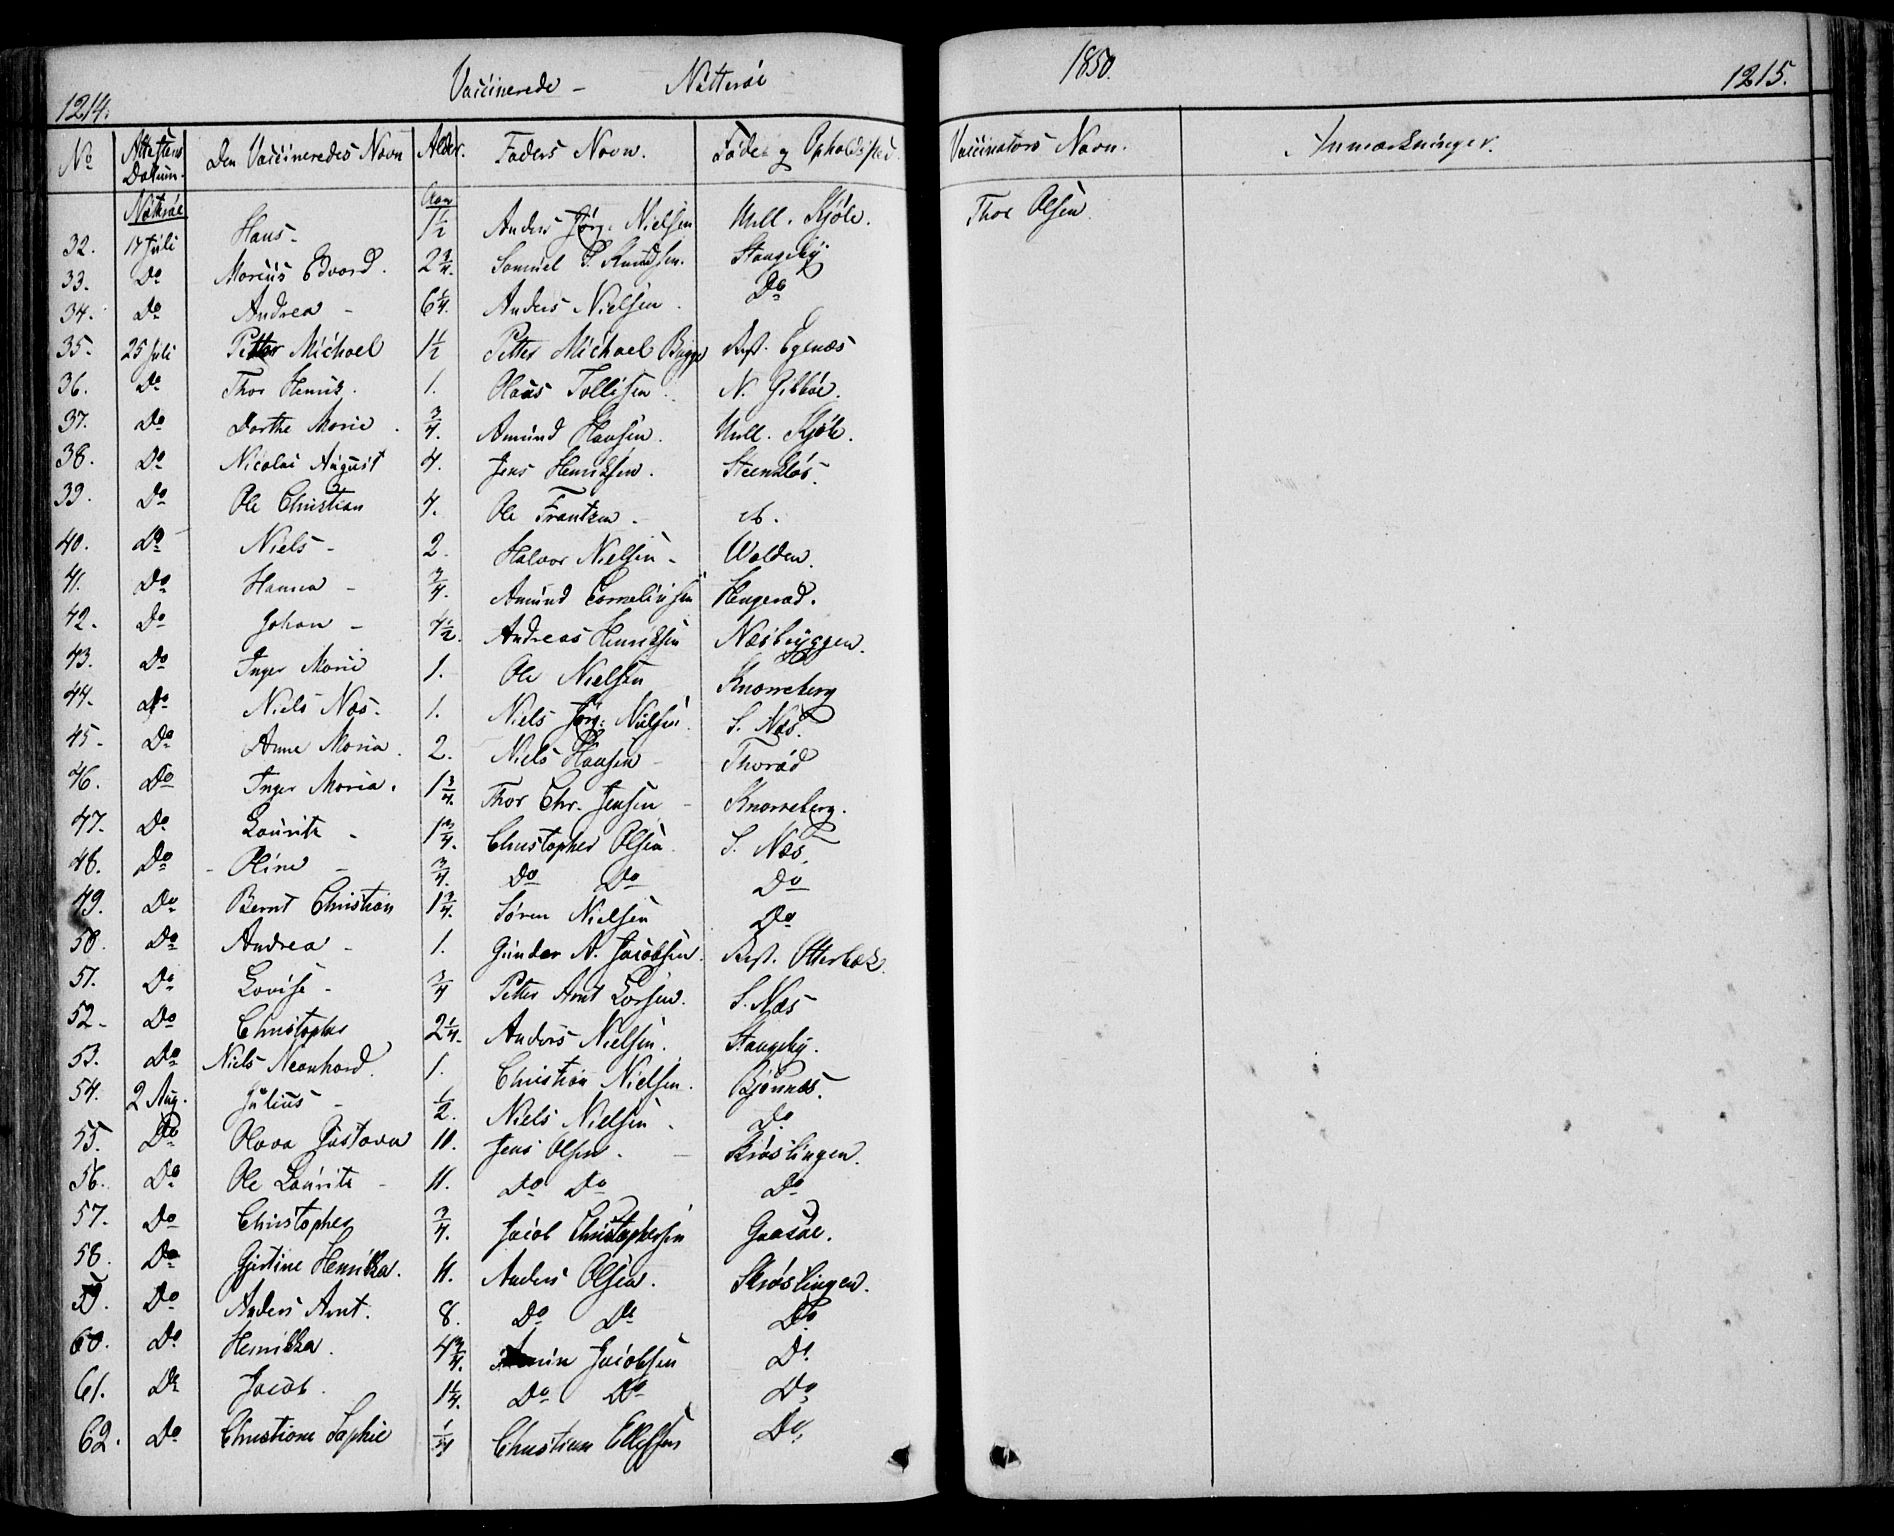 1214. Vaccinerede – Nøtterøe 1850. 1215.
No Attestens Datum. Den Vaccineredes Navn Alder. Faders Navn. Føde- og Opholdsted. Vaccinators Navn. Anmærkninger.
Nøtterøe Aar
32. 17 Juli Hans - 1½ Anders Jørg. Nielsen Mell. Kjøle. Thor Olsen
33. Do Marius Edvard. 2¾. Samuel P. Knudsen. Stangeby
34. Do Andrea - 6¼. Anders Nielsen. Do
35. 25 Juli Petter Michael 1½ Petter Michael Bugge Rest. Egenæs
36. Do Thor Henrik. 1. Olaus Tollefsen. N. Gibbøe.
37. Do Dorthe Marie. ¾. Amund Hansen. Mell. Kjøle.
38. Do Nicolai August 4. Jens Henriksen. Steenkløs.
39. Do Ole Christian 4. Ole Frantzen -
40. Do Niels - 2. Halvor Nielsen - Wolden.
41. Do Hanna - ¾. Amund Corneliussen Hengerød.
42. Do Johan - 4½. Andreas Henriksen Næsbryggen.
43. Do Inger Marie 1. Ole Nielsen Knarreberg
44. Do Niels Næs. 1. Niels Jørg: Nielsen. S. Næs.
45. Do Anne Maria. 2. Niels Hansen - Thorød
46. Do Inger Maria. 1¾. Thor Chr. Jensen - Knarreberg.
47. Do Lauritz - 1¾. Christopher Olsen. S. Næs.
48. Do - Oline - ¾. Do Do Do
49. Do Bernt Christian 1¾. Søren Nielsen Do
50. Do Andrea - 1. Gunder A. Jacobsen. Rest. Otterbæk.
51. Do Lovise - ¾ Petter Arnt Larsen. S. Næs
52. Do Christopher 2¼. Anders Nielsen. Stangeby.
53. Do Niels Neonhard. 1. Christian Nielsen. Bjønnæs.
54. 2 Aug. Julius - ½. Niels Nielsen - Do
55. Do Olava Gustava 11. Jens Olsen. - Krøslingen.
56. Do Ole Lauritz - 11. Do Do Do
57. Do Christopher ¾. Jacob Christophersen Gaasøe.
58. Do Gjertine Henrikka. 11. Anders Olsen. Skrøslingen.
59. Do Anders Arnt. 8. Do Do Do
60. Do Henrikka. 4¾. Jacobsen Do
61. Do Jacob. 1¼. Do Do Do
62. Do Christiane Sophie ¼ Christian Ellefsen Do.